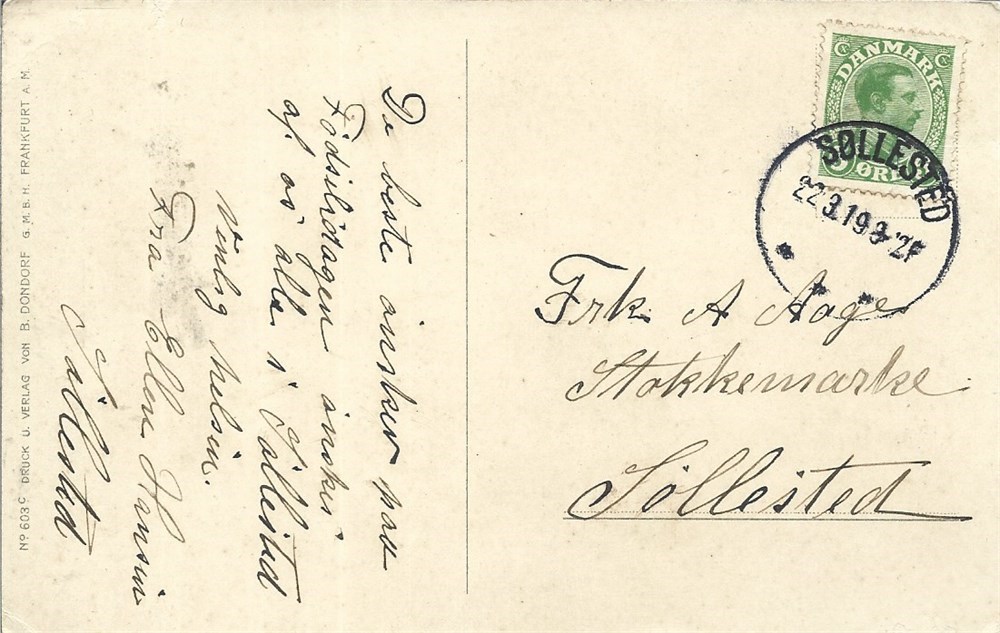 De beste ønsker paa
Fødsilsdagen ønskes
af os alle i Søllested
Venlig helsin.
Fra Ellen Hansen
Søllested
DANMARK
5 ØRE
SØLLESTED
22.3.19 9
Frk. A Aage
Stokkemarke
Søllested
No 603 C DRUCK U. VERLAG VON B. DONDORF G. M. B. H. FRANKFURT A. M.